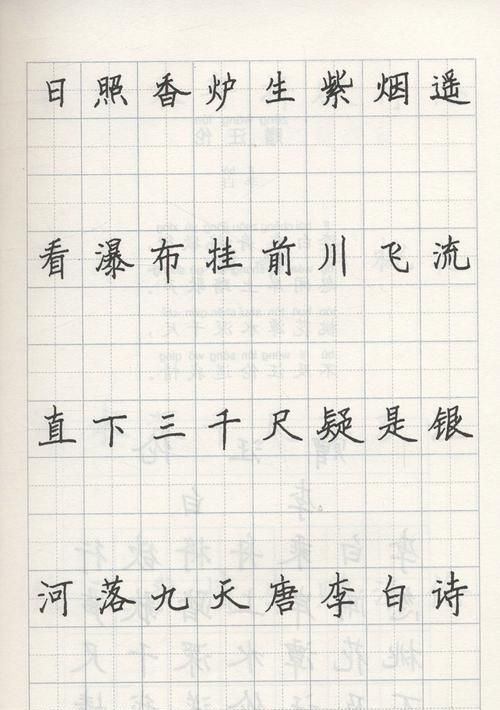 日照香炉生紫烟遥
看瀑布挂前川飞流
直下三千尺疑是银
河落九天唐李白诗